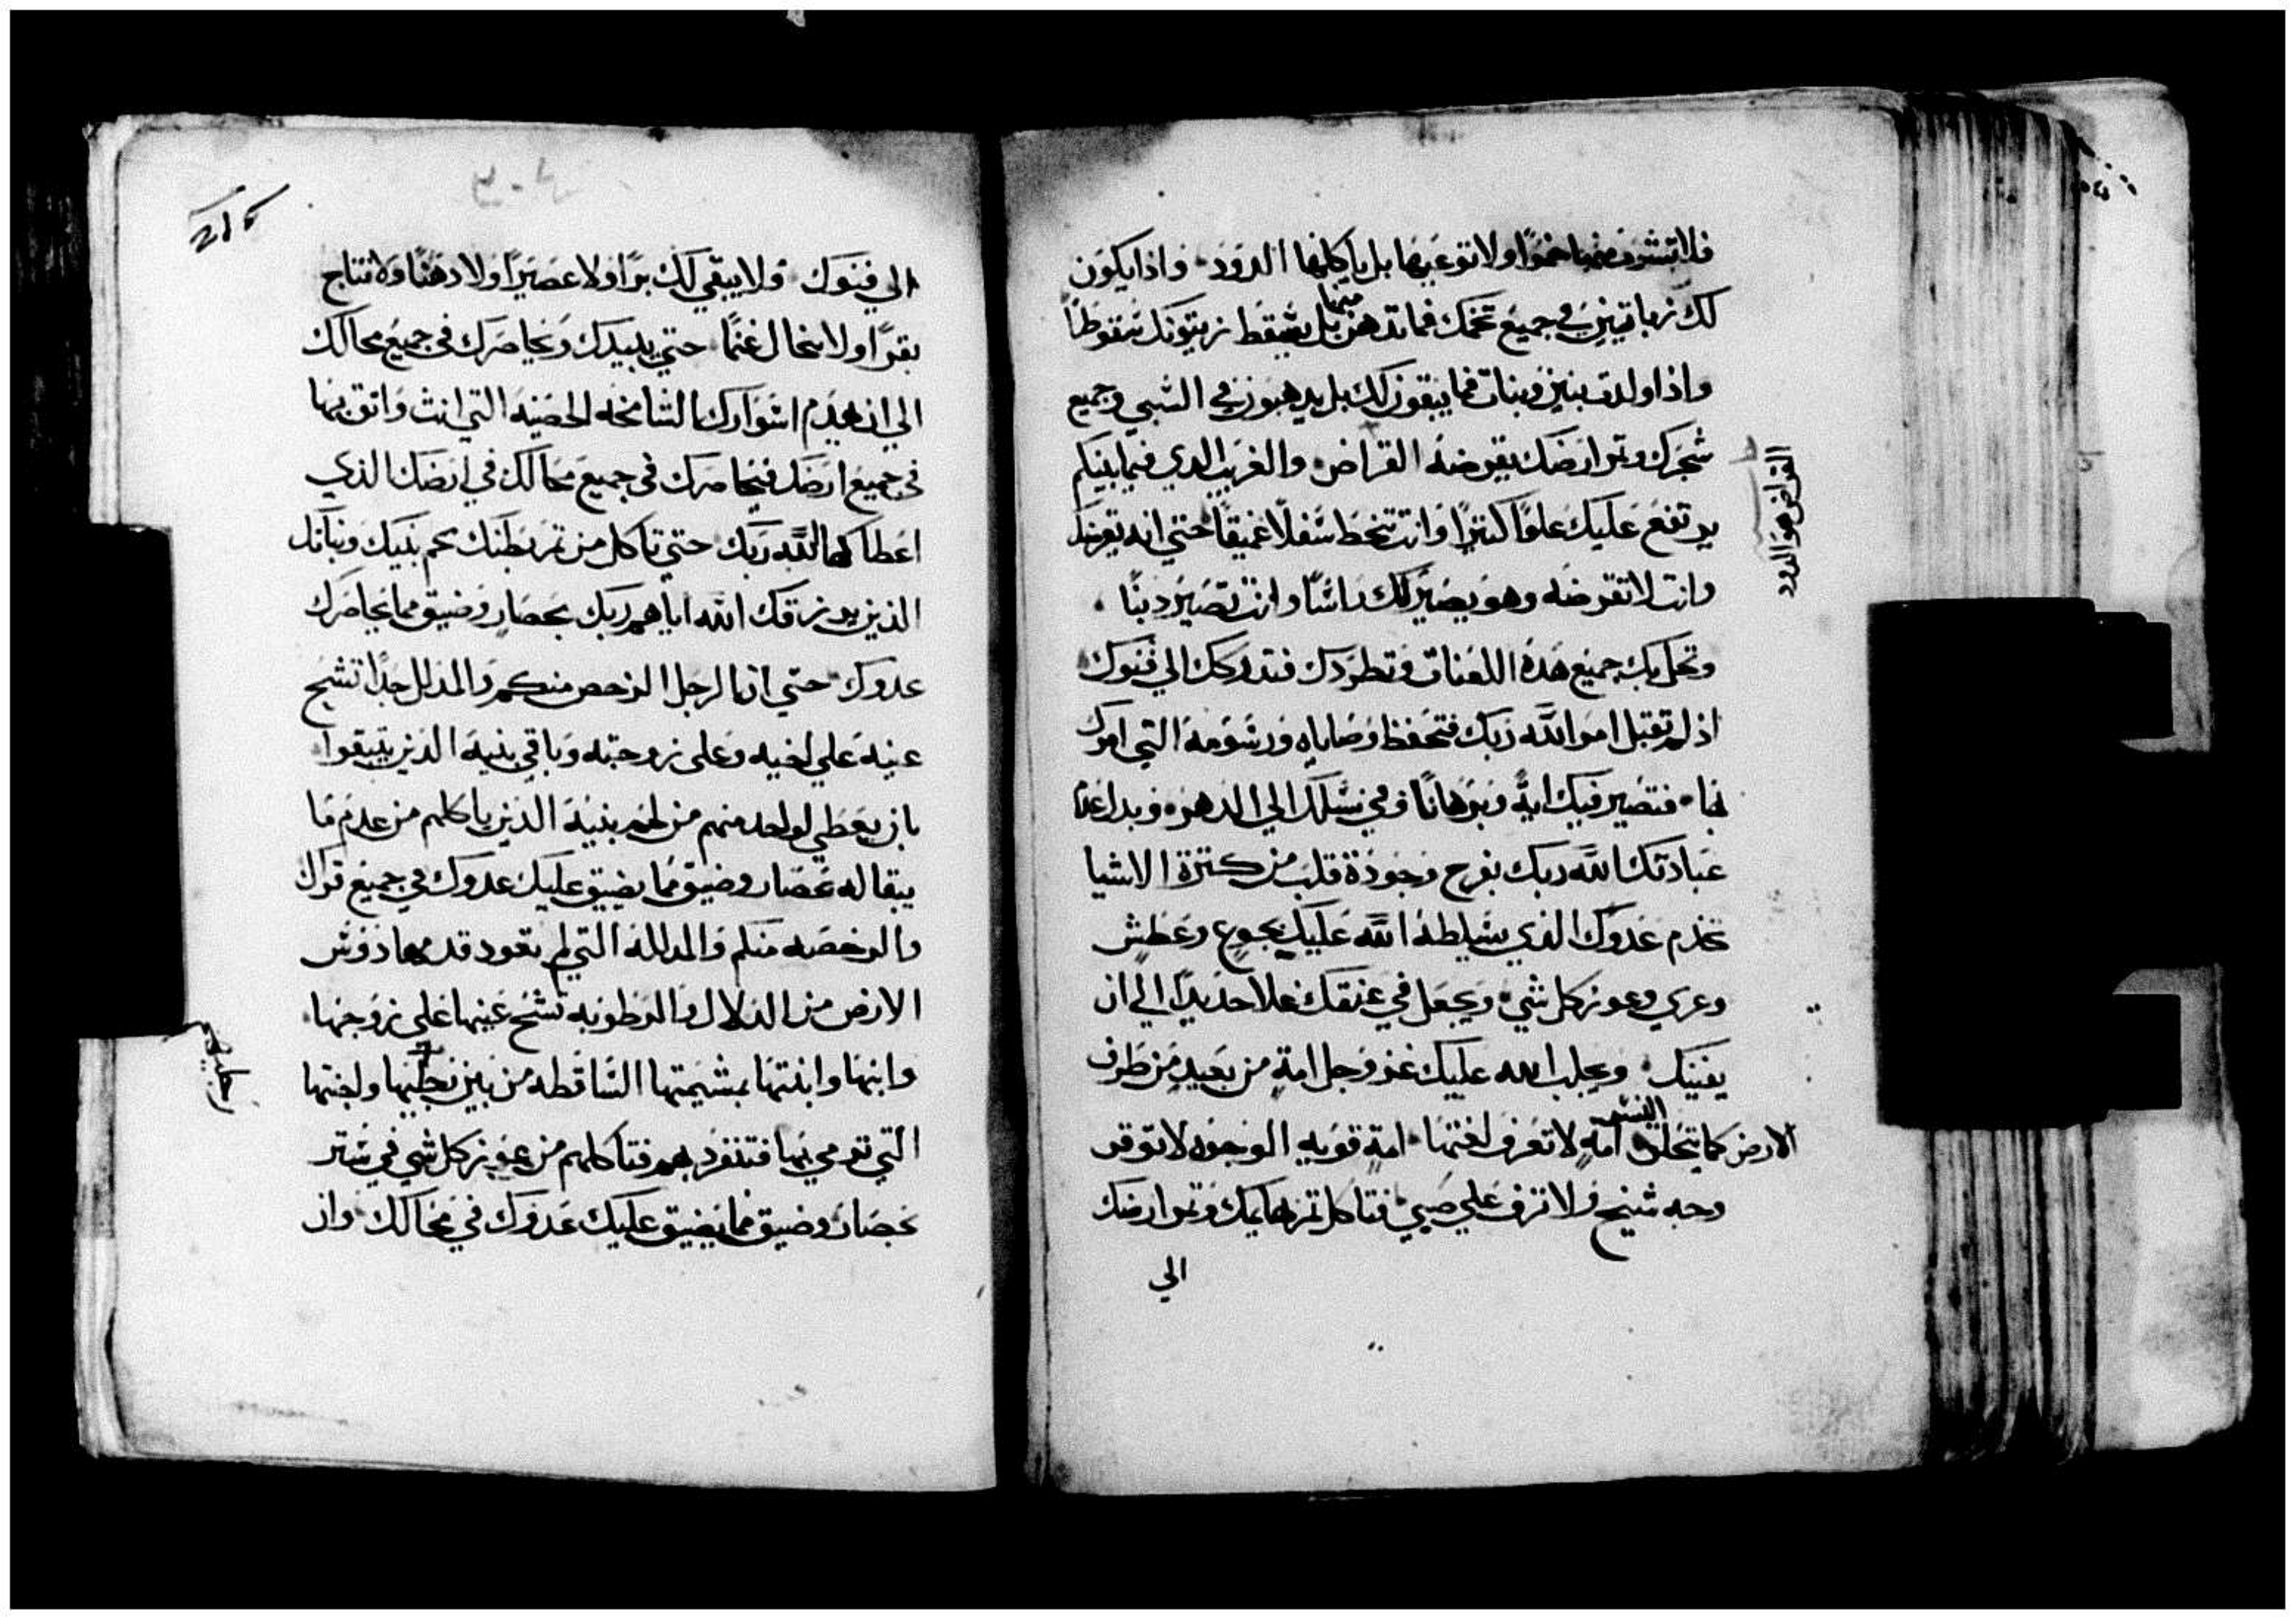 فلا تشرب منها خمرًا ولا توعيها بل ياكلها الدود · واذا يكون
لك زباتين في جميع تخمك فما تدهن منها بل يسقط زيتونك سقوطًا
واذا اولدت بنين وبنات فما يبقون لك بل يدهبون في السبي وجميع
شجرك وثمر ارضك يقرضه القراض · والغريب الدي فيما بينكم
يرتفع عليك علوًا كبيرًا وانت تنحط سفلًا عميقًا حتي انه يقرضك
وانت لا تقرضه وهو يصير لك راسًا وانت تصير دنبًا ·
وتحل بك جميع هده اللعنات وتطردك فتدركك الي فنوك
اذ لم تقبل امر الله ربك فتحفظ وصاياه ورسومه التي امرك
بها · فتصير فيك ايةً وبرهانًا وفي نسلك الي الدهر · وبدل عدم
عبادتك الله ربك بفرح وجودة قلب من كثرة الاشيا
تخدم عدوك الذي يسلطه الله عليك بجوع وعطش
وعري وعوز كل شي · ويجعل في عنقك غلا حديدًا الي ان
يفنيك · ويجلب الله عليك عز وجل امةٍ من بعيد من طرف
الارض كما يتحلق النسر امةٍ لا تعرف لغتها · امةٍ قويه الوجوه لا توقر
وجه شيخ ولا تراف علي صبي · فتاكل ثمر بهايمك وثمر ارضك
الي
القراض هو الدود
215
الي فنوك · ولا يبقي لك برًا ولا عصيرًا ولا دهنًا ولا نتاج
بقرًا ولا سخال غنمًا حتي يبيدك ويحاصرك في جميع محالك
الي ان يهدم اسوارك الشامخه الحصينه التي انت واثق بها
في جميع ارضك فيحاصرك في جميع محالك في ارضك الذي
اعطاكها الله ربك حتي تاكل من ثمر بطنك لحم بنيك وبناتك
الذين يرزقك الله اياهم ربك بحصار وضيق مما يحاصرك
عدوك · حتي ان الرجل الرخص منكم والمدلل جدًا تشح
عينه علي اخيه وعلى زوجته وباقي بنيه الذين يتبقوا
بان يعطي لواحد منهم من لحم بنيه الذين ياكلهم من عدم ما
يبقا له بحصار وضيق مما يضيق عليك عدوك في جميع قراك
والرخصه منكم والمدلله التي لم تعود قدمها دوس
الارض من الدلال والرطوبه تشح عينها علي زوجها
وابنها وابنتها بمشيمتها الساقطه من بين رجليها وابنتها
التي ترمي بها فتنفرد بهم فتاكلهم من عوز كل شي في ستر
بحصار وضيق مما يضيق عليك عدوك في محالك · وان
رجليها